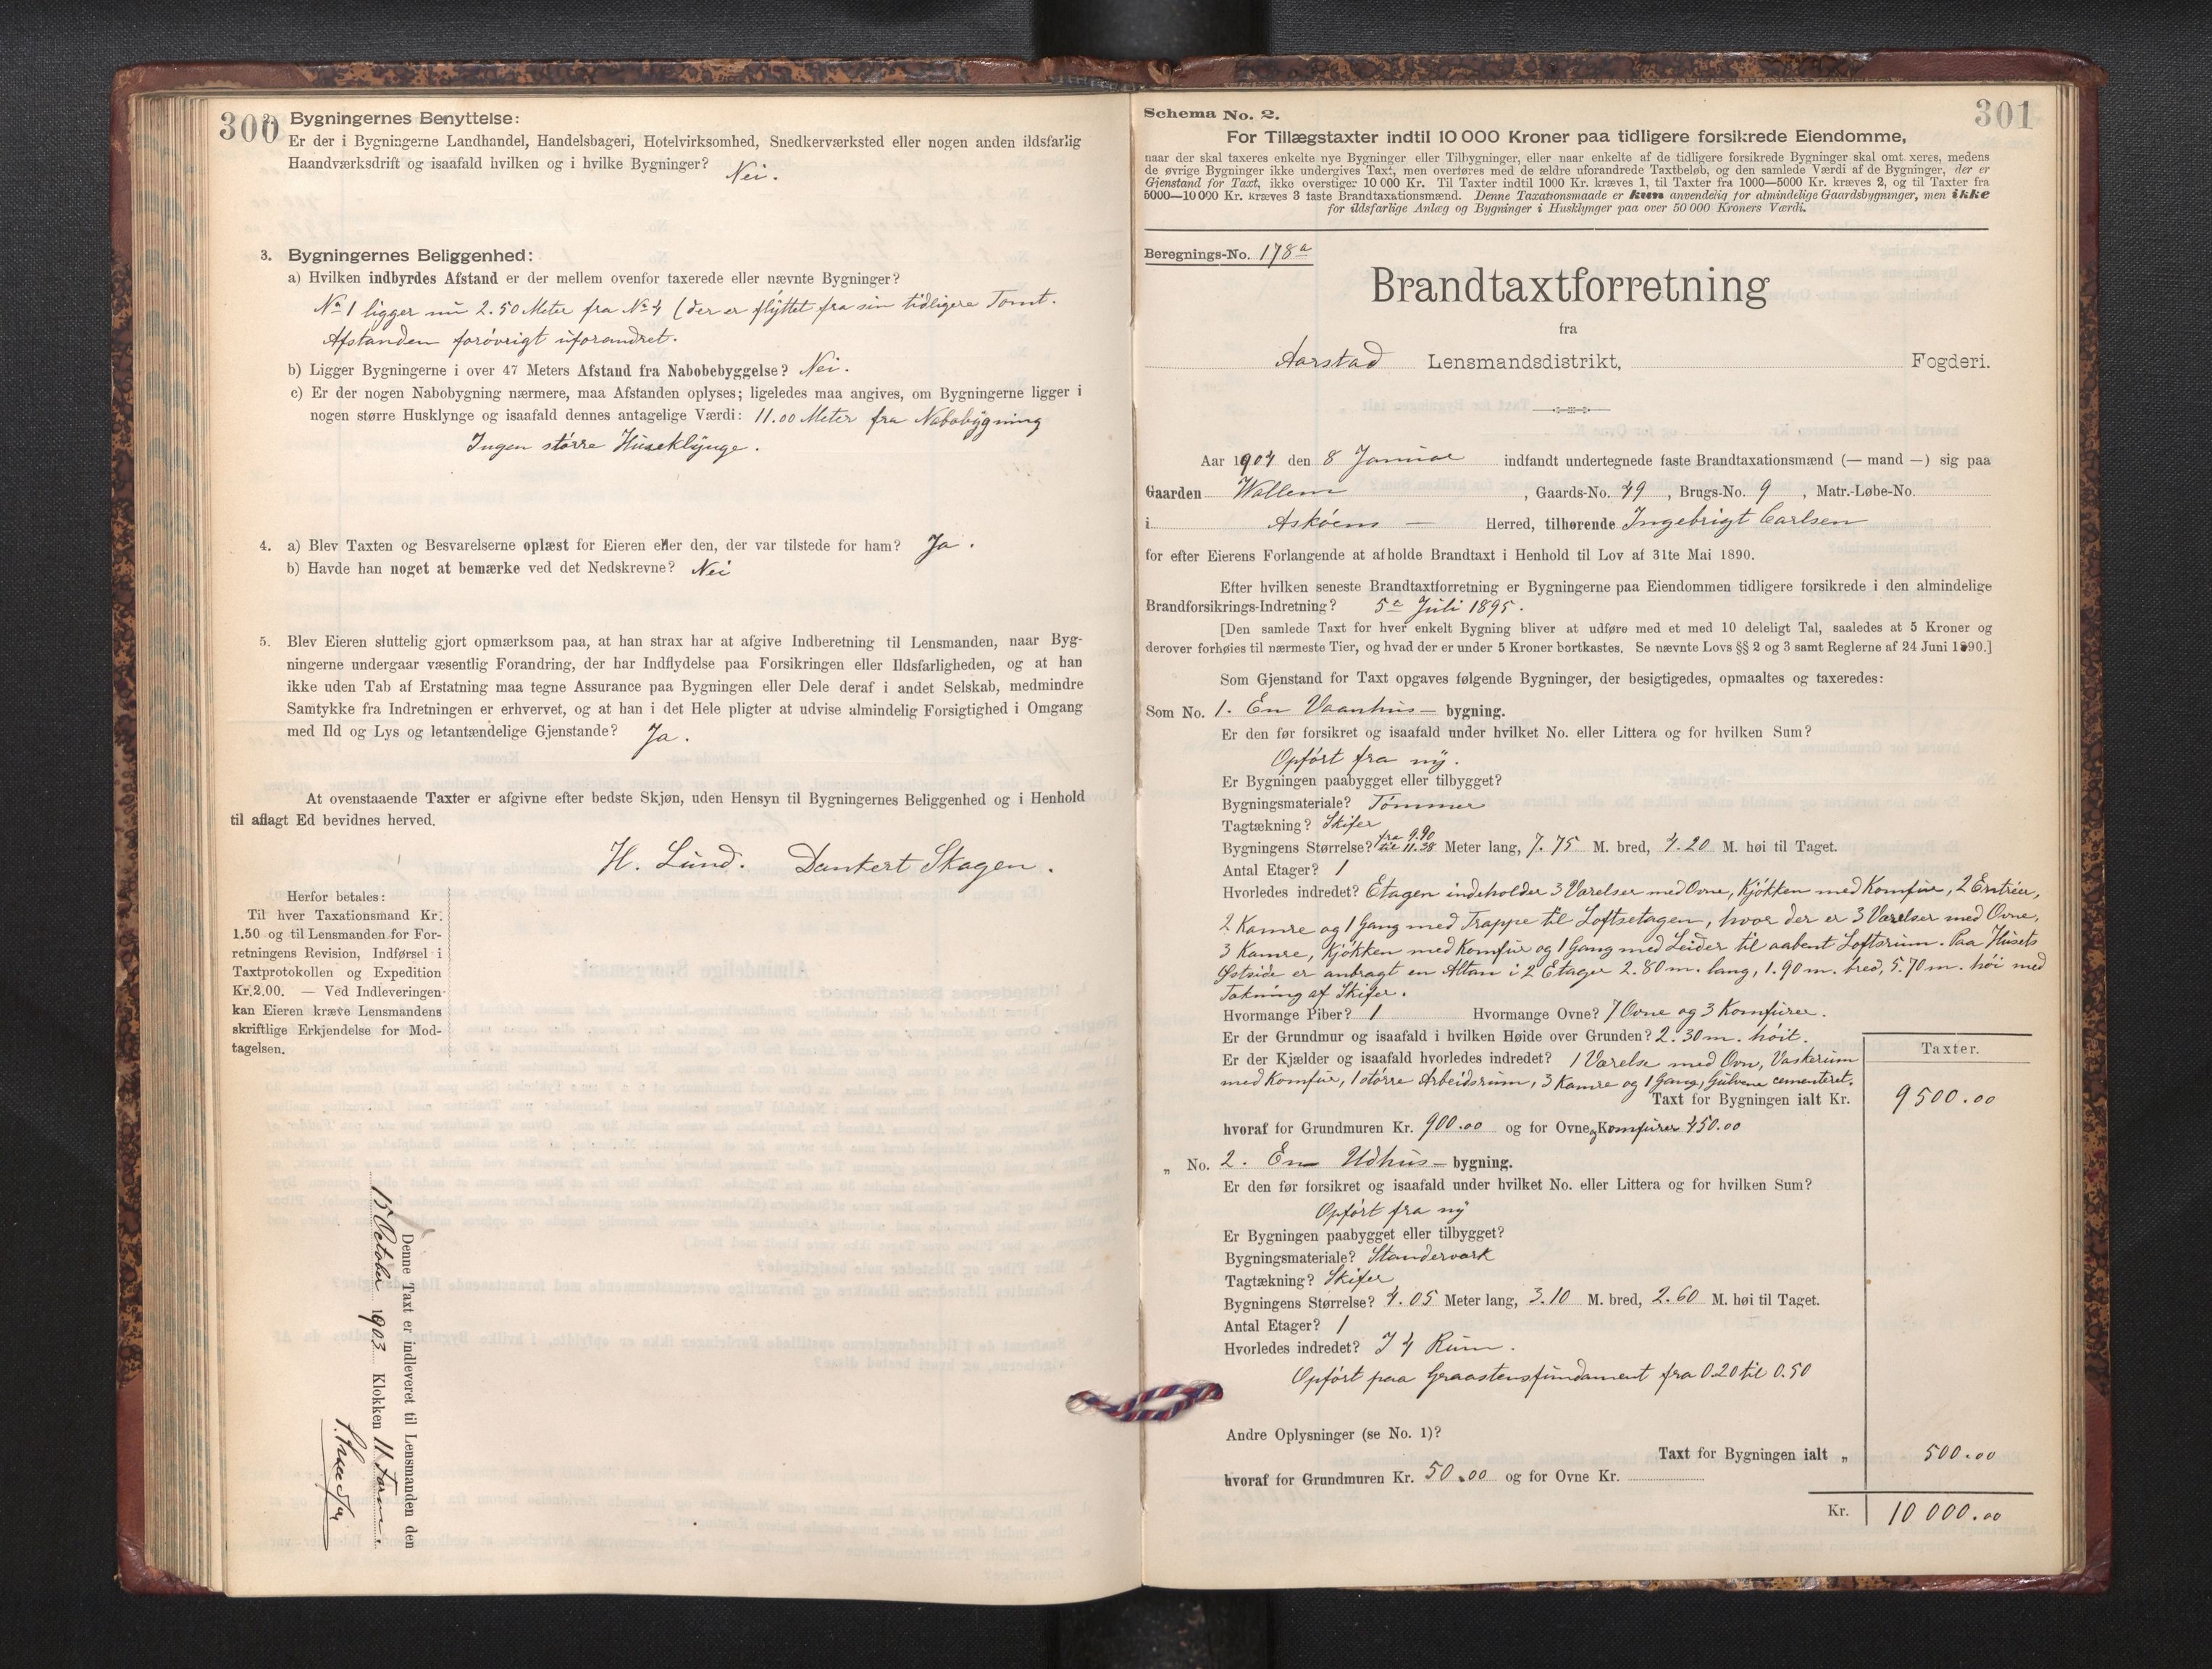 300
2. Bygningernes Benyttelse:
Er der i Bygningerne Landhandel, Handelsbageri, Hotelvirksomhed, Snedkerværksted eller nogen anden ildsfarlig
Haandværksdrift og isaafald hvilken og i hvilke Bygninger? Nei.
3. Bygningernes Beliggenhed:
a) Hvilken indbyrdes Afstand er der mellem ovenfor taxerede eller nævnte Bygninger?
No 1 ligger nu 2.50 Meter fra No 4 (der er flyttet fra sin tidligere Tomt.
Afstanden forøvrigt uforandret.
b) Ligger Bygningerne i over 47 Meters Afstand fra Nabobebyggelse? Nei.
c) Er der nogen Nabobygning nærmere, maa Afstanden oplyses; ligeledes maa angives, om Bygningerne ligger i
nogen større Husklynge og isaafald dennes antagelige Værdi: 11.00 Meter fra Nabobygning
Ingen større Huseklynge.
4. a) Blev Taxten og Besvarelserne oplæst for Eieren eller den, der var tilstede for ham? Ja.
b) Havde han noget at bemærke ved det Nedskrevne? Nei
5. Blev Eieren sluttelig gjort opmærksom paa, at han strax har at afgive Indberetning til Lensmanden, naar Byg-
ningerne undergaar væsentlig Forandring, der har Indflydelse paa Forsikringen eller Ildsfarligheden, og at han
ikke uden Tab af Erstatning maa tegne Assurance paa Bygningen eller Dele deraf i andet Selskab, medmindre
Samtykke fra Indretningen er erhvervet, og at han i det Hele pligter at udvise almindelig Forsigtighed i Omgang
med Ild og Lys og letantændelige Gjenstande? Ja.
At ovenstaaende Taxter er afgivne efter bedste Skjøn, uden Hensyn til Bygningernes Beliggenhed og i Henhold
til aflagt Ed bevidnes herved.
H. Lund. Dankert Skagen.
Herfor betales:
Til hver Taxationsmand Kr.
1.50 og til Lensmanden for For-
retningens Revision, Indførsel i
Taxtprotokollen og Expedition
Kr. 2.00. — Ved Indleveringen
kan Eieren kræve Lensmandens
skriftlige Erkjendelse for Mod-
tagelsen.
Denne Taxt er indleveret til Lensmanden den
15 October 1903 Klokken 11 Form.
Schema No. 2.
301
For Tillægstaxter indtil 10 000 Kroner paa tidligere forsikrede Eiendomme,
naar der skal taxeres enkelte nye Bygninger eller Tilbygninger, eller naar enkelte af de tidligere forsikrede Bygninger skal omt xeres, medens
de øvrige Bygninger ikke undergives Taxt, men overføres med de ældre uforandrede Taxtbeløb, og den samlede Værdi af de Bygninger, der er
Gjenstand for Taxt, ikke overstiger 10 000 Kr. Til Taxter indtil 1000 Kr. kræves 1, til Taxter fra 1000—5000 Kr. kræves 2, og til Taxter fra
5000—10 000 Kr. kræves 3 faste Brandtaxationsmænd. Denne Taxationsmaade er kun anvendelig for almindelige Gaardsbygninger, men ikke
for ildsfarlige Anlæg og Bygninger i Husklynger paa over 50 000 Kroners Værdi.
Beregnings-No. 178a
Brandtaxtforretning
fra
Aarstad Lensmandsdistrikt, Fogderi.
Aar 1904 den 8 Januar indfandt undertegnede faste Brandtaxationsmænd (— mand —) sig paa
Gaarden Wallem, Gaards-No. 49, Brugs-No. 9, Matr.-Løbe-No.
i Askøens — Herred, tilhørende Ingebrigt Carlsen
for efter Eierens Forlangende at afholde Brandtaxt i Henhold til Lov af 31te Mai 1890.
Efter hvilken seneste Brandtaxtforretning er Bygningerne paa Eiendommen tidligere forsikrede i den almindelige
Brandforsikrings-Indretning? 5te Juli 1895.
[Den samlede Taxt for hver enkelt Bygning bliver at udføre med et med 10 deleligt Tal, saaledes at 5 Kroner og
derover forhøies til nærmeste Tier, og hvad der er under 5 Kroner bortkastes. Se nævnte Lovs §§ 2 og 3 samt Reglerne af 24 Juni 1890.]
Som Gjenstand for Taxt opgaves følgende Bygninger, der besigtigedes, opmaaltes og taxeredes:
Som No. 1. En Vaanhus — bygning.
Er den før forsikret og isaafald under hvilket No. eller Littera og for hvilken Sum?
Opført fra ny.
Er Bygningen paabygget eller tilbygget?
Bygningsmateriale? Tømmer
Tagtækning? Skifer
Bygningens Størrelse? fra 9.90 til 11.38 Meter lang, 7.75 M. bred, 4.20 M. høi til Taget.
Antal Etager? 1
Hvorledes indredet? Etagen indeholder 3 Værelser med Ovne, Kjøkken med Komfur, 2 Entréer,
2 Kamre og 1 Gang med Trappe til Loftsetagen, hvor der er 3 Værelser med Ovne,
3 Kamre, Kjøkken med Komfur og 1 Gang med Leider til aabent Loftsrum. Paa Husets
Østside er anbragt en Altan i 2 Etager 2.80 m. lang, 1.90 m. bred, 5.70 m. høi med
Tækning af Skifer.
Hvormange Piber? 1 Hvormange Ovne? 7 Ovne og 3 Komfurer.
Er der Grundmur og isaafald i hvilken Høide over Grunden? 2.30 m. høit.
Er der Kjælder og isaafald hvorledes indredet? 1 Værelse med Ovn, Vaskerum
med Komfur, 1 større Arbeidsrum, 3 Kamre og 1 Gang, Gulvene cementeret.
Taxter.
Taxt for Bygningen ialt Kr. 9500.00
hvoraf for Grundmuren Kr. 900.00 og for Ovne og Komfurer 450.00
„ No. 2. En Udhus — bygning.
Er den før forsikret og isaafald under hvilket No. eller Littera og for hvilken Sum?
Opført fra ny
Er Bygningen paabygget eller tilbygget?
Bygningsmateriale? Standerværk
Tagtækning? Skifer
Bygningens Størrelse? 4.05 Meter lang, 3.10 M. bred, 2.60 M. høi til Taget.
Antal Etager? 1
Hvorledes indredet? I 4 Rum.
Opført paa Graastensfundament fra 0.20 til 0.50
Andre Oplysninger (se No. 1)?
Taxt for Bygningen ialt „ 500.00
hvoraf for Grundmuren Kr. 50.00 og for Ovne Kr.
Kr. 10 000.00